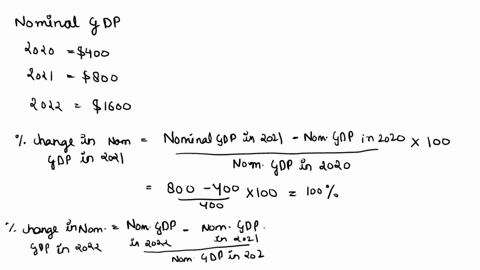 Nominal GDP
2020 = $400
2021 = $800
2022 = $1600
% change in Nom GDP in 2021 = Nominal GDP in 2021 - Nom. GDP in 2020 / Nom. GDP in 2020 × 100
= 800 - 400 / 400 × 100 = 100%
% change in Nom. GDP in 2022 = Nom. GDP in 2022 - Nom. GDP. in 2021 / Nom GDP in 202